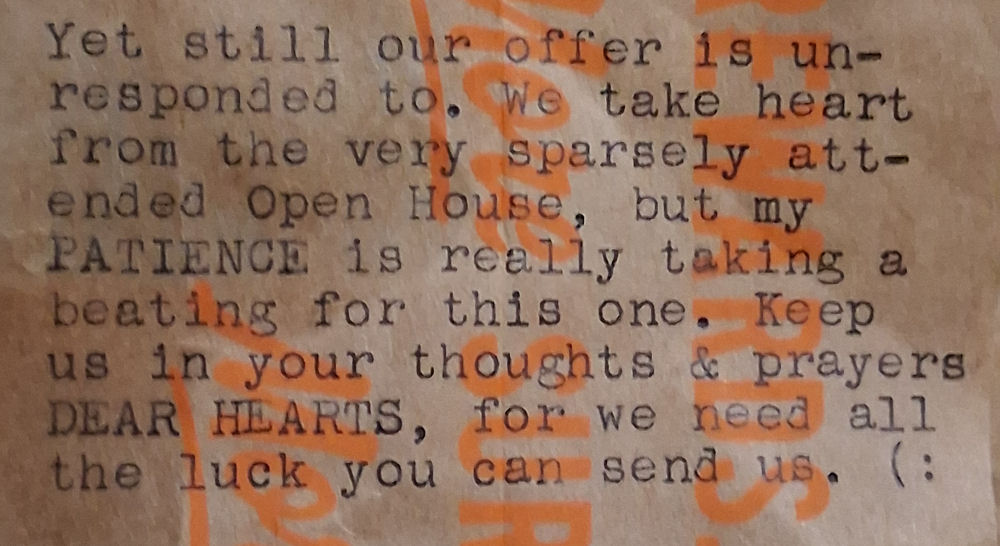 Yet still our offer is un-
responded to. We take heart
from the very sparsely att-
ended Open House, but my
PATIENCE is really taking a
beating for this one. Keep
us in your thoughts & prayers
DEAR HEARTS, for we need all
the luck you can send us. (:
REWARDS.